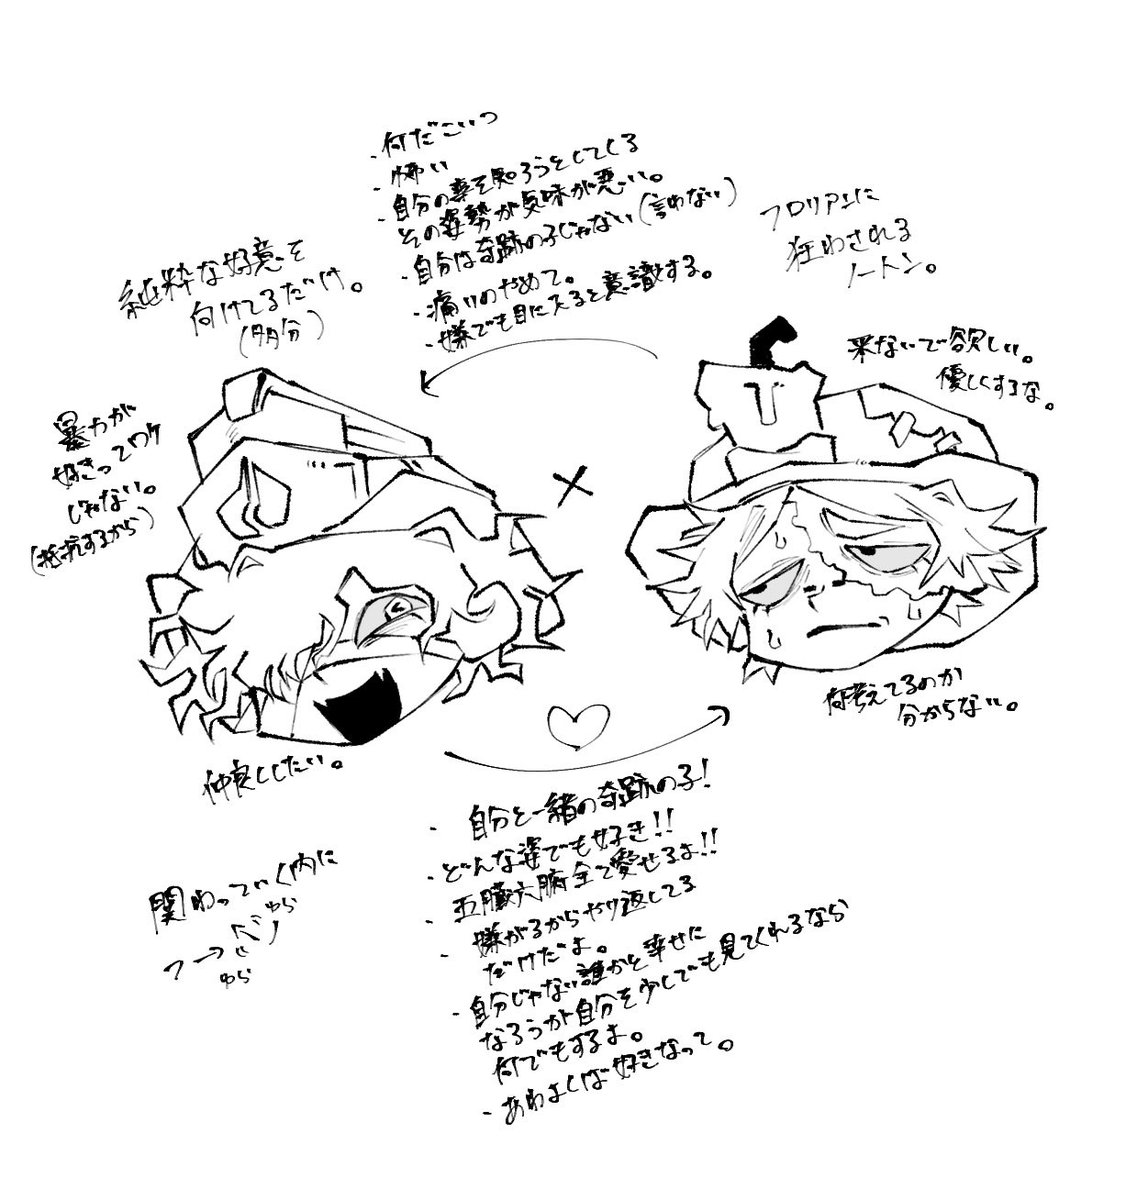 ・何だこいつ
・怖い
・自分の事を知ろうとしてくる
その姿勢が気味が悪い。
・自分は奇跡の子じゃない(言わない)
・痛いのやめて。
・嫌でも目に入ると意識する。
フロリアンに
狂わされる
ノートン。
純粋な好意を
向けてるだけ。
(多分)
来ないで欲しい。
優しくするな。
暴力が
好きってワケ
じゃない。
(抵抗するから)
×
何考えてるのか
分からない。
仲良ししたい。
・自分と一緒の奇跡の子!
・どんな姿でも好き!!
・五臓六腑全て愛せるよ!!
・嫌がるからやり返してる
だけだよ。
・自分じゃない誰かと幸せに
なろうが自分を少しでも見てくれるなら
何でもするよ。
・あわよくば好きなって。
関わっていく内に
ゆら
ゆら